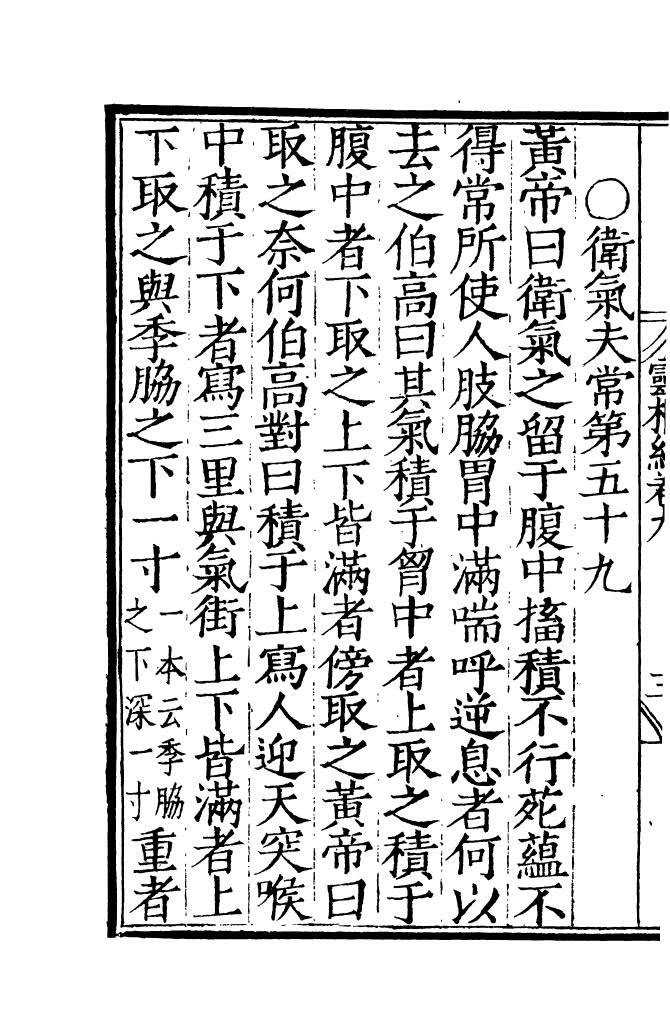 ○衛氣夫常第五十九
黃帝曰衛氣之留于腹中搐積不行菀蘊不
得常所使人肢脇胃中滿喘呼逆息者何以
去之伯高曰其氣積于胷中者上取之積于
腹中者下取之上下皆滿者傍取之黃帝曰
取之奈何伯高對曰積于上寫人迎天突喉
中積于下者寫三里與氣街上下皆滿者上
下取之與季脇之下一寸一本云季脇之下深一寸重者
靈樞經卷九
三